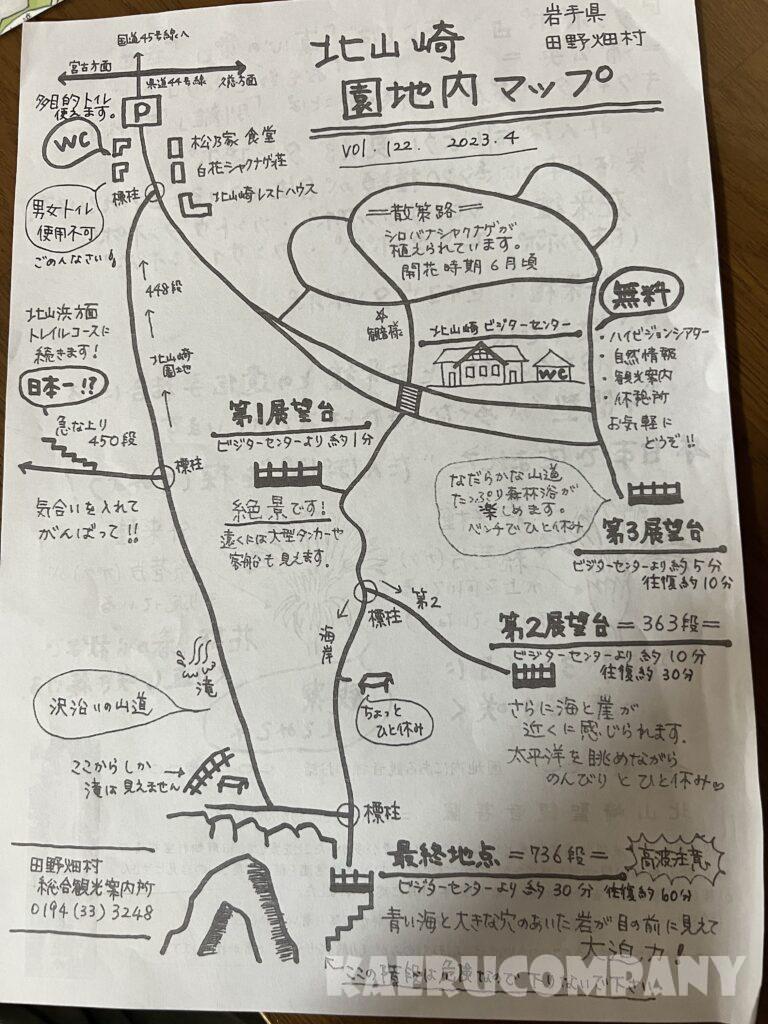 岩手県
田野畑村
北山崎
園地内マップ
vol.122. 2023.4
国道45号線へ
宮古方面
県道44号線
久慈方面
P
多目的トイレ
使えます。
WC
松乃家 食堂
白花シャクナゲ荘
北山崎レストハウス
標柱
男女トイレ
使用不可
ごめんなさい
448段
北山崎
園地
北山浜方面
トレイルコースに
続きます!
日本一!?
急な上り
450段
標柱
気合いを入れて
がんばって!!
=散策路=
シロバナシャクナゲが
植えられています。
開花時期6月頃
☆
観音様
北山崎 ビジターセンター
WC
無料
・ハイビジョンシアター
・自然情報
・観光案内
・休憩所
お気軽に
どうぞ!!
第1展望台
ビジターセンターより約1分
絶景です!
遠くには大型タンカーや
客船も見えます。
なだらかな山道
たっぷり森林浴が
楽しめます。
ベンチでひと休み
第3展望台
ビジターセンターより約5分
往復約10分
標柱
第2
海岸
第2展望台=363段=
ビジターセンターより約10分
往復約30分
さらに海と崖が
近くに感じられます。
太平洋を眺めながら
のんびりとひと休み♡
ちょっと
ひと休み
滝
沢沿いの山道
ここからしか
滝は見えません
標柱
最終地点=736段=
高波注意
ビジターセンターより約30分 往復約60分
青い海と大きな穴のあいた岩が目の前に見えて
大迫力!
ここの階段は危険なので下りないで下さい
田野畑村
総合観光案内所
0194(33)3248
KAERUCOMPANY